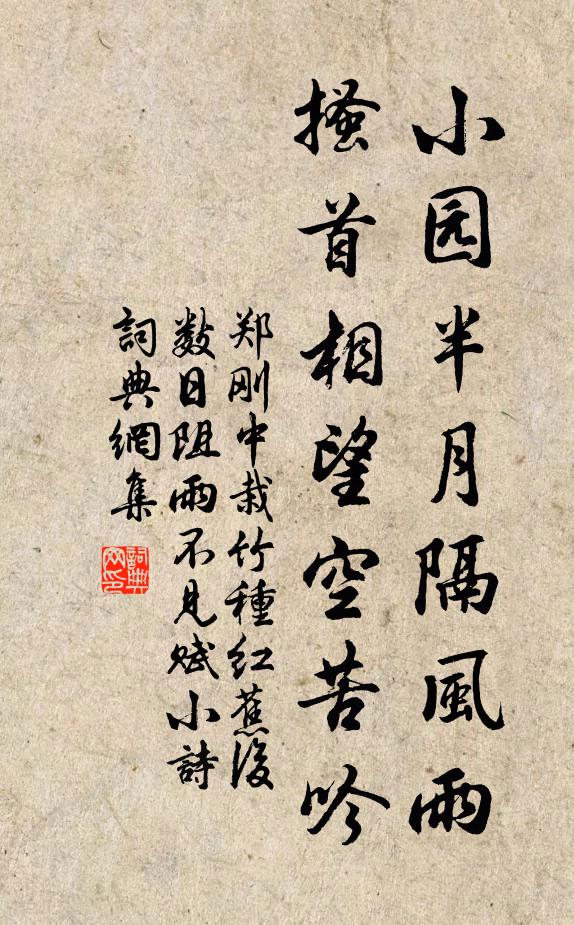 小园半月隔風雨
搔首相望空苦吟
郑刚中栽竹種红蕉後
数日阻雨不見赋小詩
詞典網集
詞典
网印